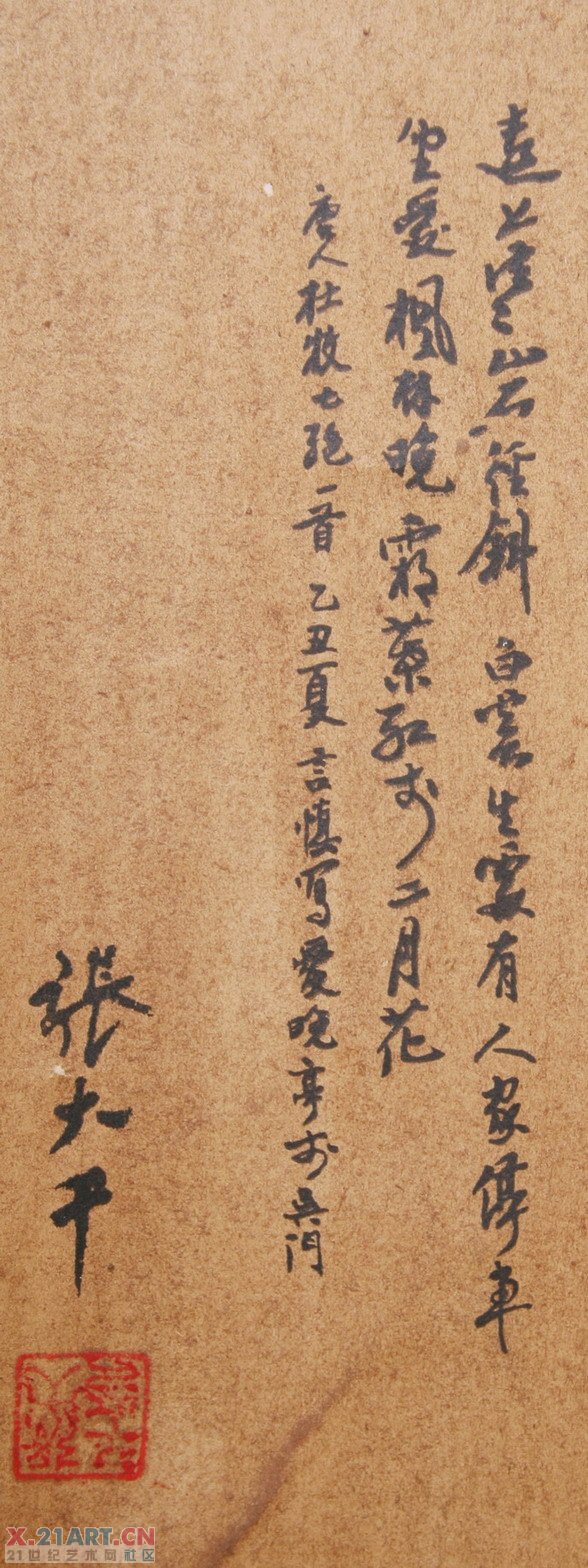 遠上寒山石徑斜白雲生處有人家停車
坐愛楓林晚霜葉紅於二月花
唐人杜牧七絕一首乙丑夏言慎寫愛晚亭於吳門
張大千
X.21ART.CN
21世纪艺术网社区